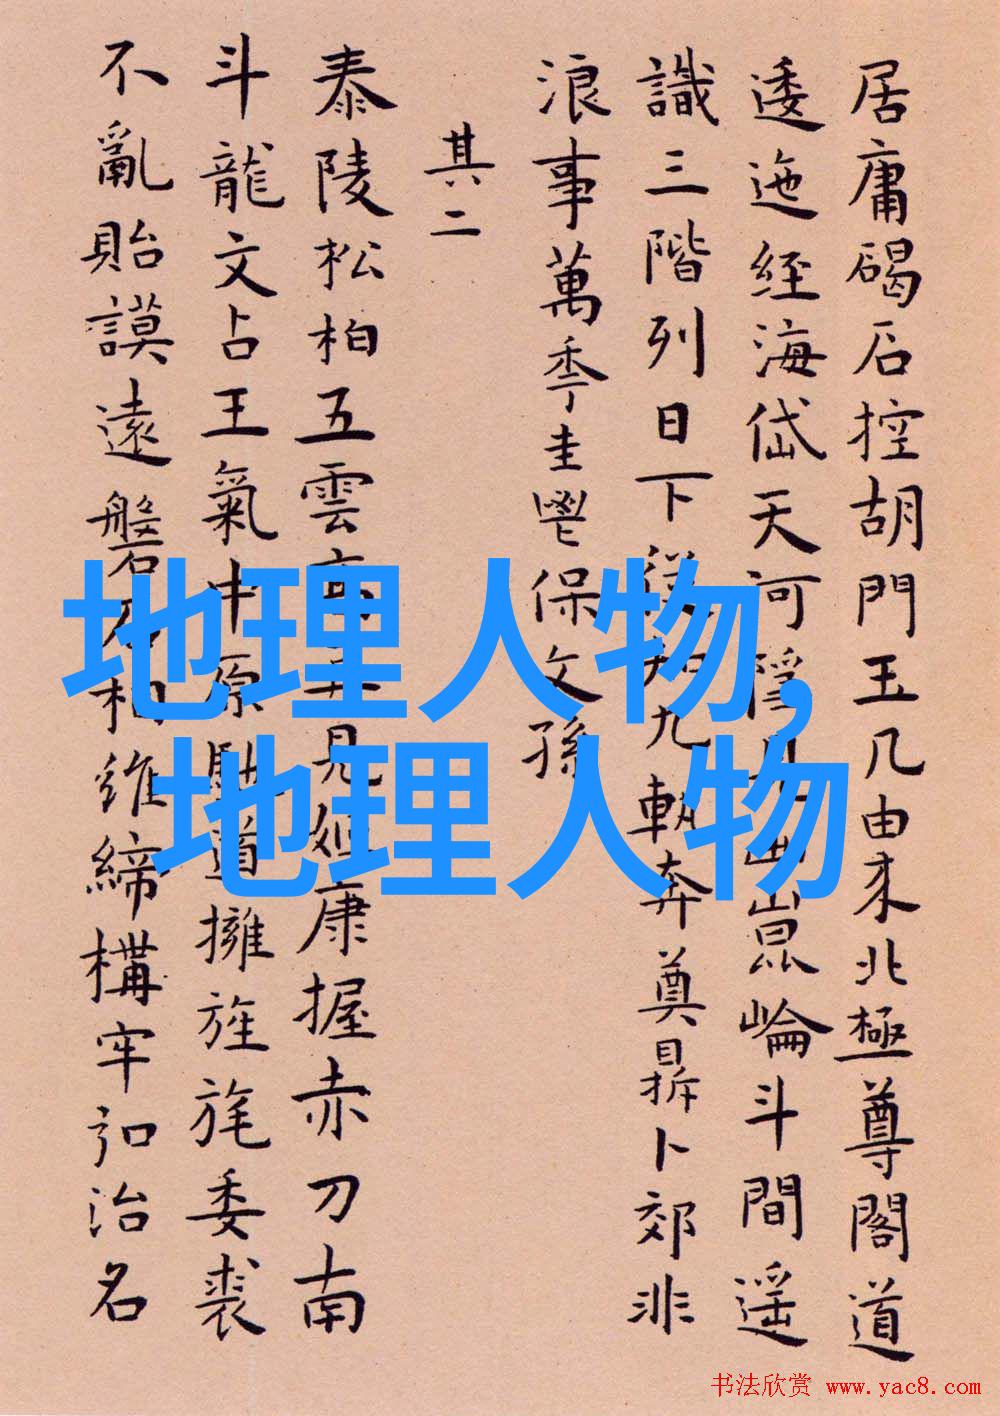 居庸碣石控胡門玉几由来北極尊閣道
逶迤經海岱天河隱見畫崑崙斗間遥
識三階列日下從知九軌奔奠鼎卜郊非
浪事萬季圭鬯保文孫
其二
泰陵松柏五雲高王見姬康握赤刀南
斗龍文占王氣中原馳道擁旌旄委裘
不亂貽謨遠磐石相維締構牢知治名
地理人物,
地理人物
书法欣赏 www.yac8.com